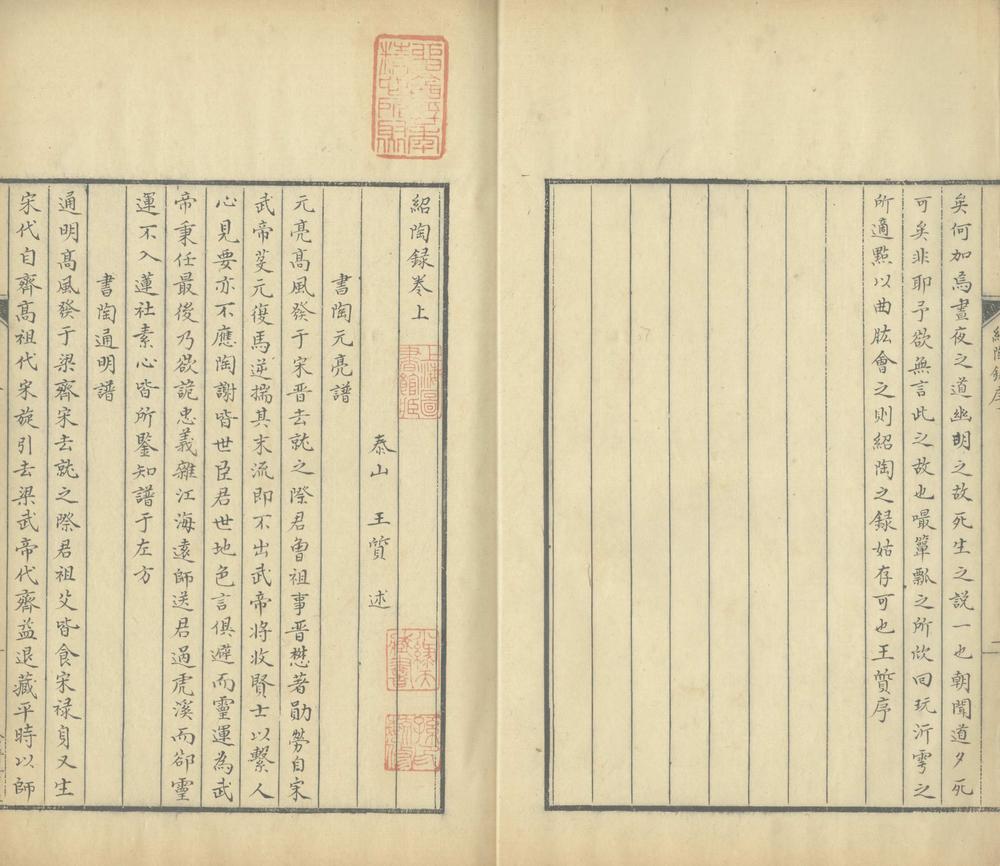 矣何加焉晝夜之道幽明之故死生之説一也朝聞道夕死
可矣非耶予欲無言此之故也嘬簞瓢之所欣回玩沂雩之
所適㸃以曲肱會之則紹陶之録姑存可也王質序
紹陶錄序
二
紹陶録卷上
泰山 王質 述
書陶元亮譜
元亮髙風發于宋晉去就之際君曾祖事晋懋著勛勞自宋
武帝芟元復馬逆揣其末流即不出武帝将收賢士以繫人
心見要亦不應陶謝皆世臣君世地色言俱避而靈運為武
帝秉任最後乃欲詭忠義雜江海遠師送君過虎溪而卻靈
運不入蓮社素心皆所鑒知譜于左方
書陶通明譜
通明髙風發于梁齊宋去就之際君祖父皆食宋禄身又生
宋代自齊髙祖代宋旋引去梁武帝代齊益退藏平時以師
上海圖
書館藏